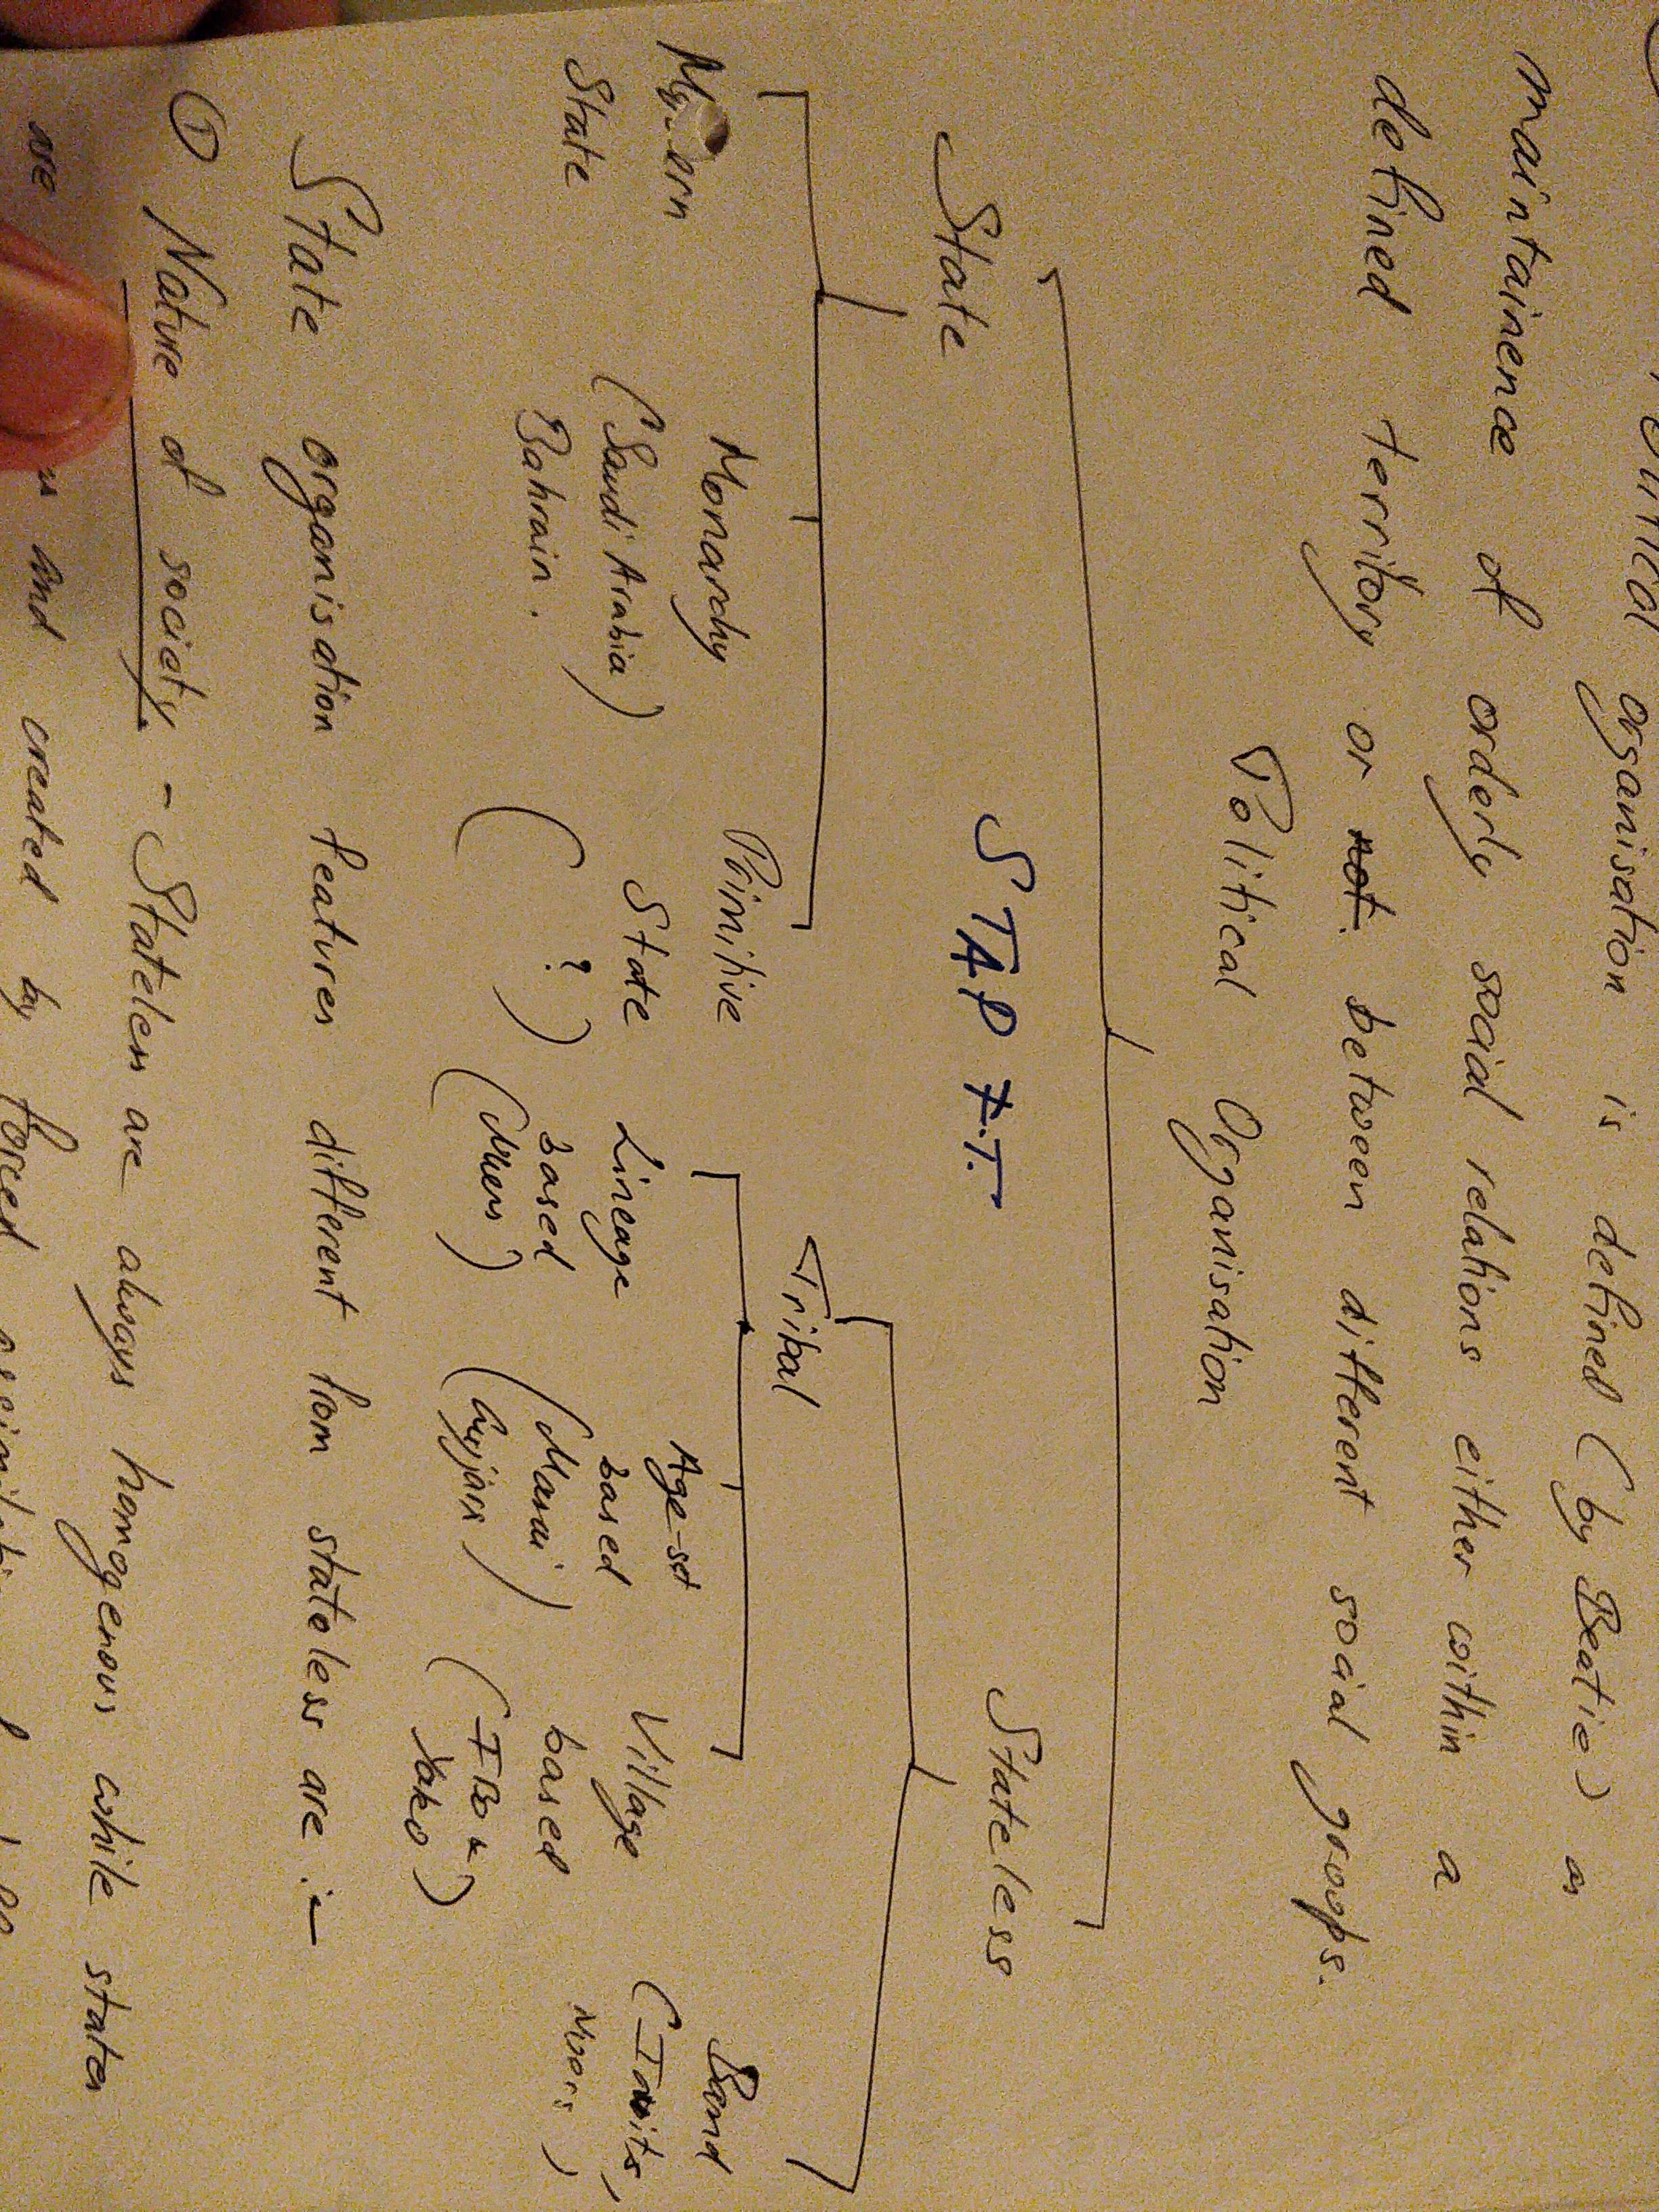 organisation is defined (by Beatie) as
maintainence of orderly social relations either within a
defined territory or not. between different social groups.
Political Organisation
State STAP F.T. Stateless
Tribal
Modern State
Monarchy (Saudi Arabia) Bahrain.
Primitive State ( ? )
Lineage based (Nuers)
Age-set based (Masai Gujjars)
Village based (IBO & Yako)
Band (Inuits,
State organisation features different from stateless are :-
① Nature of society - Stateless are always homogenous while states
are and created by forced